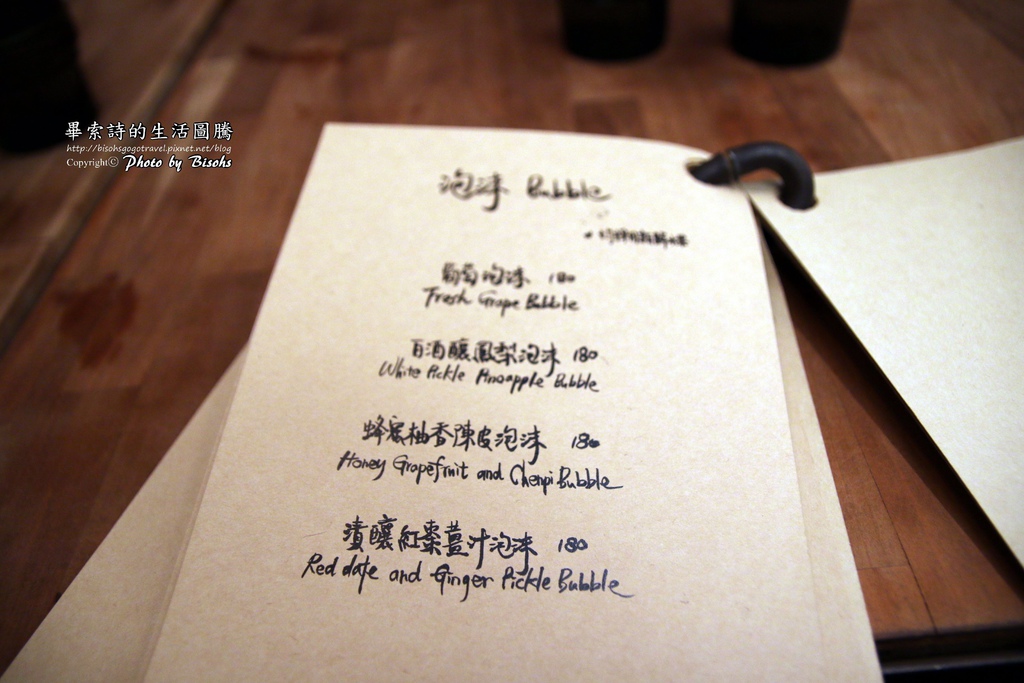 畢索詩的生活圖騰
http://bisohsgogotravel.pixnet.net/blog
Copyright© Photo by Bisohs
泡沫 Bubble
葡萄泡沫 180
Fresh Grape Bubble
百酒釀鳳梨泡沫 180
White Pickle Pineapple Bubble
蜂蜜柚香陳皮泡沫 180
Honey Grapefruit and Chenpi Bubble
漬釀紅棗薑汁泡沫 180
Red date and Ginger Pickle Bubble